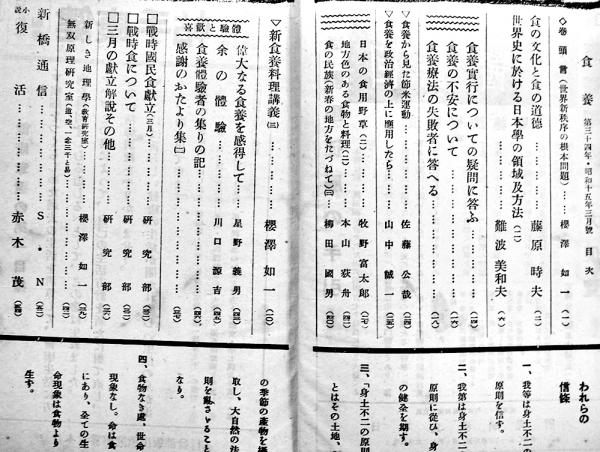 食養 第三十四年・昭和十五年三月號 目次
◇卷頭言(世界新秩序の根本問題)……櫻澤如一(一)
食の文化と食の道德……藤原時夫(二)
世界史に於ける日本學の領域及方法(二)……難波美和夫(六)
食養實行についての疑問に答ふ……(一四)
食養の不安について……(一六)
食養療法の失敗者に答へる……(一八)
▽食養から見た節米運動……佐藤公哉
▽食養を政治經濟の上に應用したら……山中誠一
日本の食用野草(二)……牧野富太郎
地方色のある食物と料理(二)……本山荻舟
食の民族(新春の地方をたづねて)……柳田國男
▽新食養料理講義(三)……櫻澤如一(一〇)
喜歡と體驗
偉大なる食養を感得して……星野義男
余の體驗……川口源吉
食養體驗者の集りの記……
感謝のかたより集(二)……
□戰時國民食獻立(三月)……研究部
□戰時食について……研究部
□三月の獻立解說その他……研究部
新しき地理學(教育研究室)……櫻澤如一
無双原理研究室
新橋通信……S・N
小說 復活……赤木茂
われらの信條
一、我等は身土不二の
原則を信ず。
二、我等は身土不二の
原則に從ひ、身
の健全を期す。
三、「身土不二の原則
とはその土地、
の季節の產物を攝
取し、大自然の法
則を亂さゞること
なり。
四、食物なき處、世命
現象なし。命は食
にあり、全ての生
命現象は食物より
生ず。